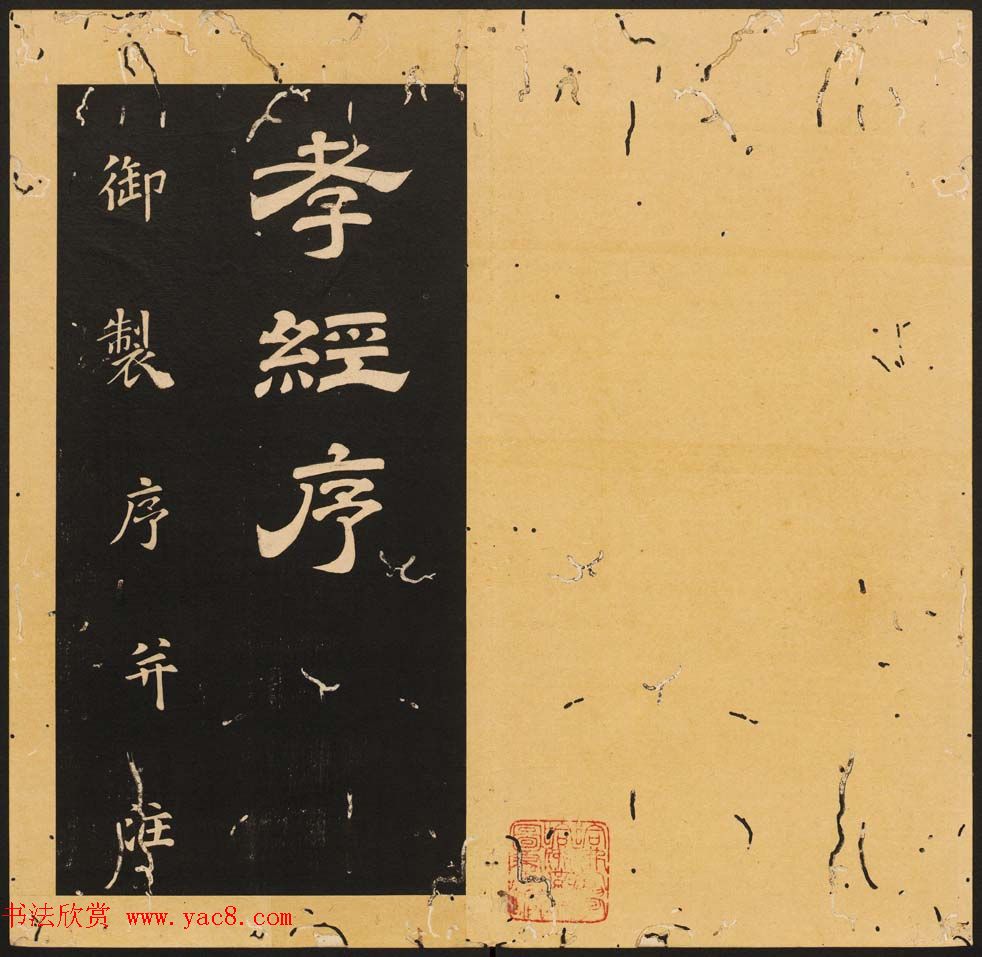 孝經序
御製序并注
书法欣赏 www.yac8.com